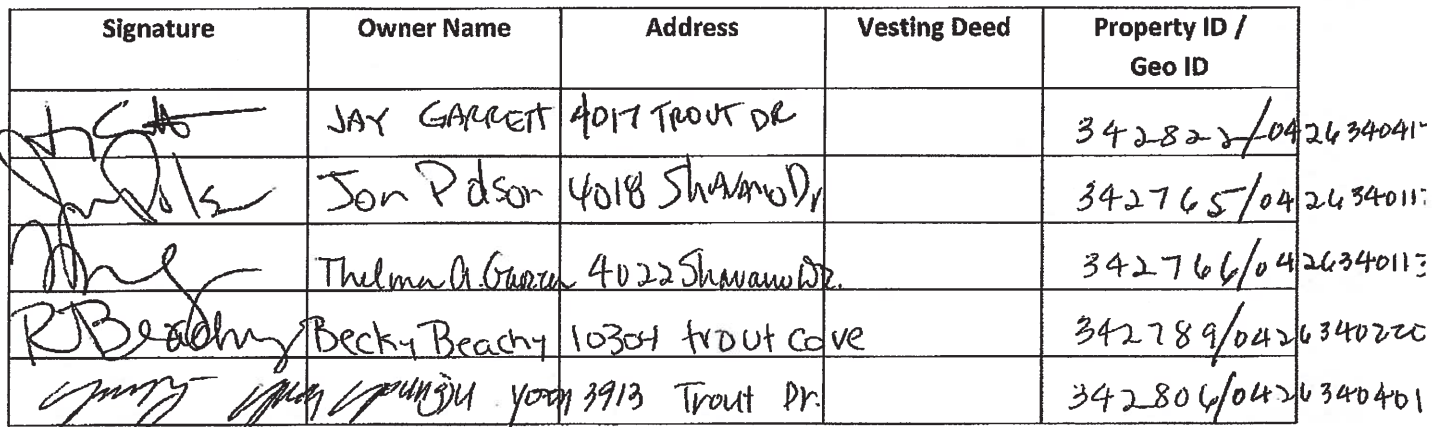 Signature Owner Name Address Vesting Deed Property ID /
Geo ID
JAY GARRETT 4017 TROUT DR 342822/042634041
Jon Polson 4018 Shavano Dr 342765/042634011
Thelma A. 4022 Shavano Dr. 342766/042634011
RJBeachy Becky Beachy 10304 trout cove 342789/0426340220
Youngju Yoon 3913 Trout Dr. 342806/0426340401